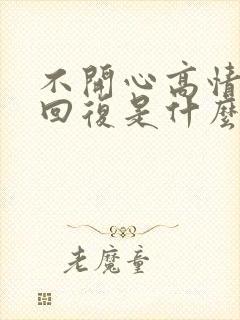 不開心高情
回復是什麼
老魔童